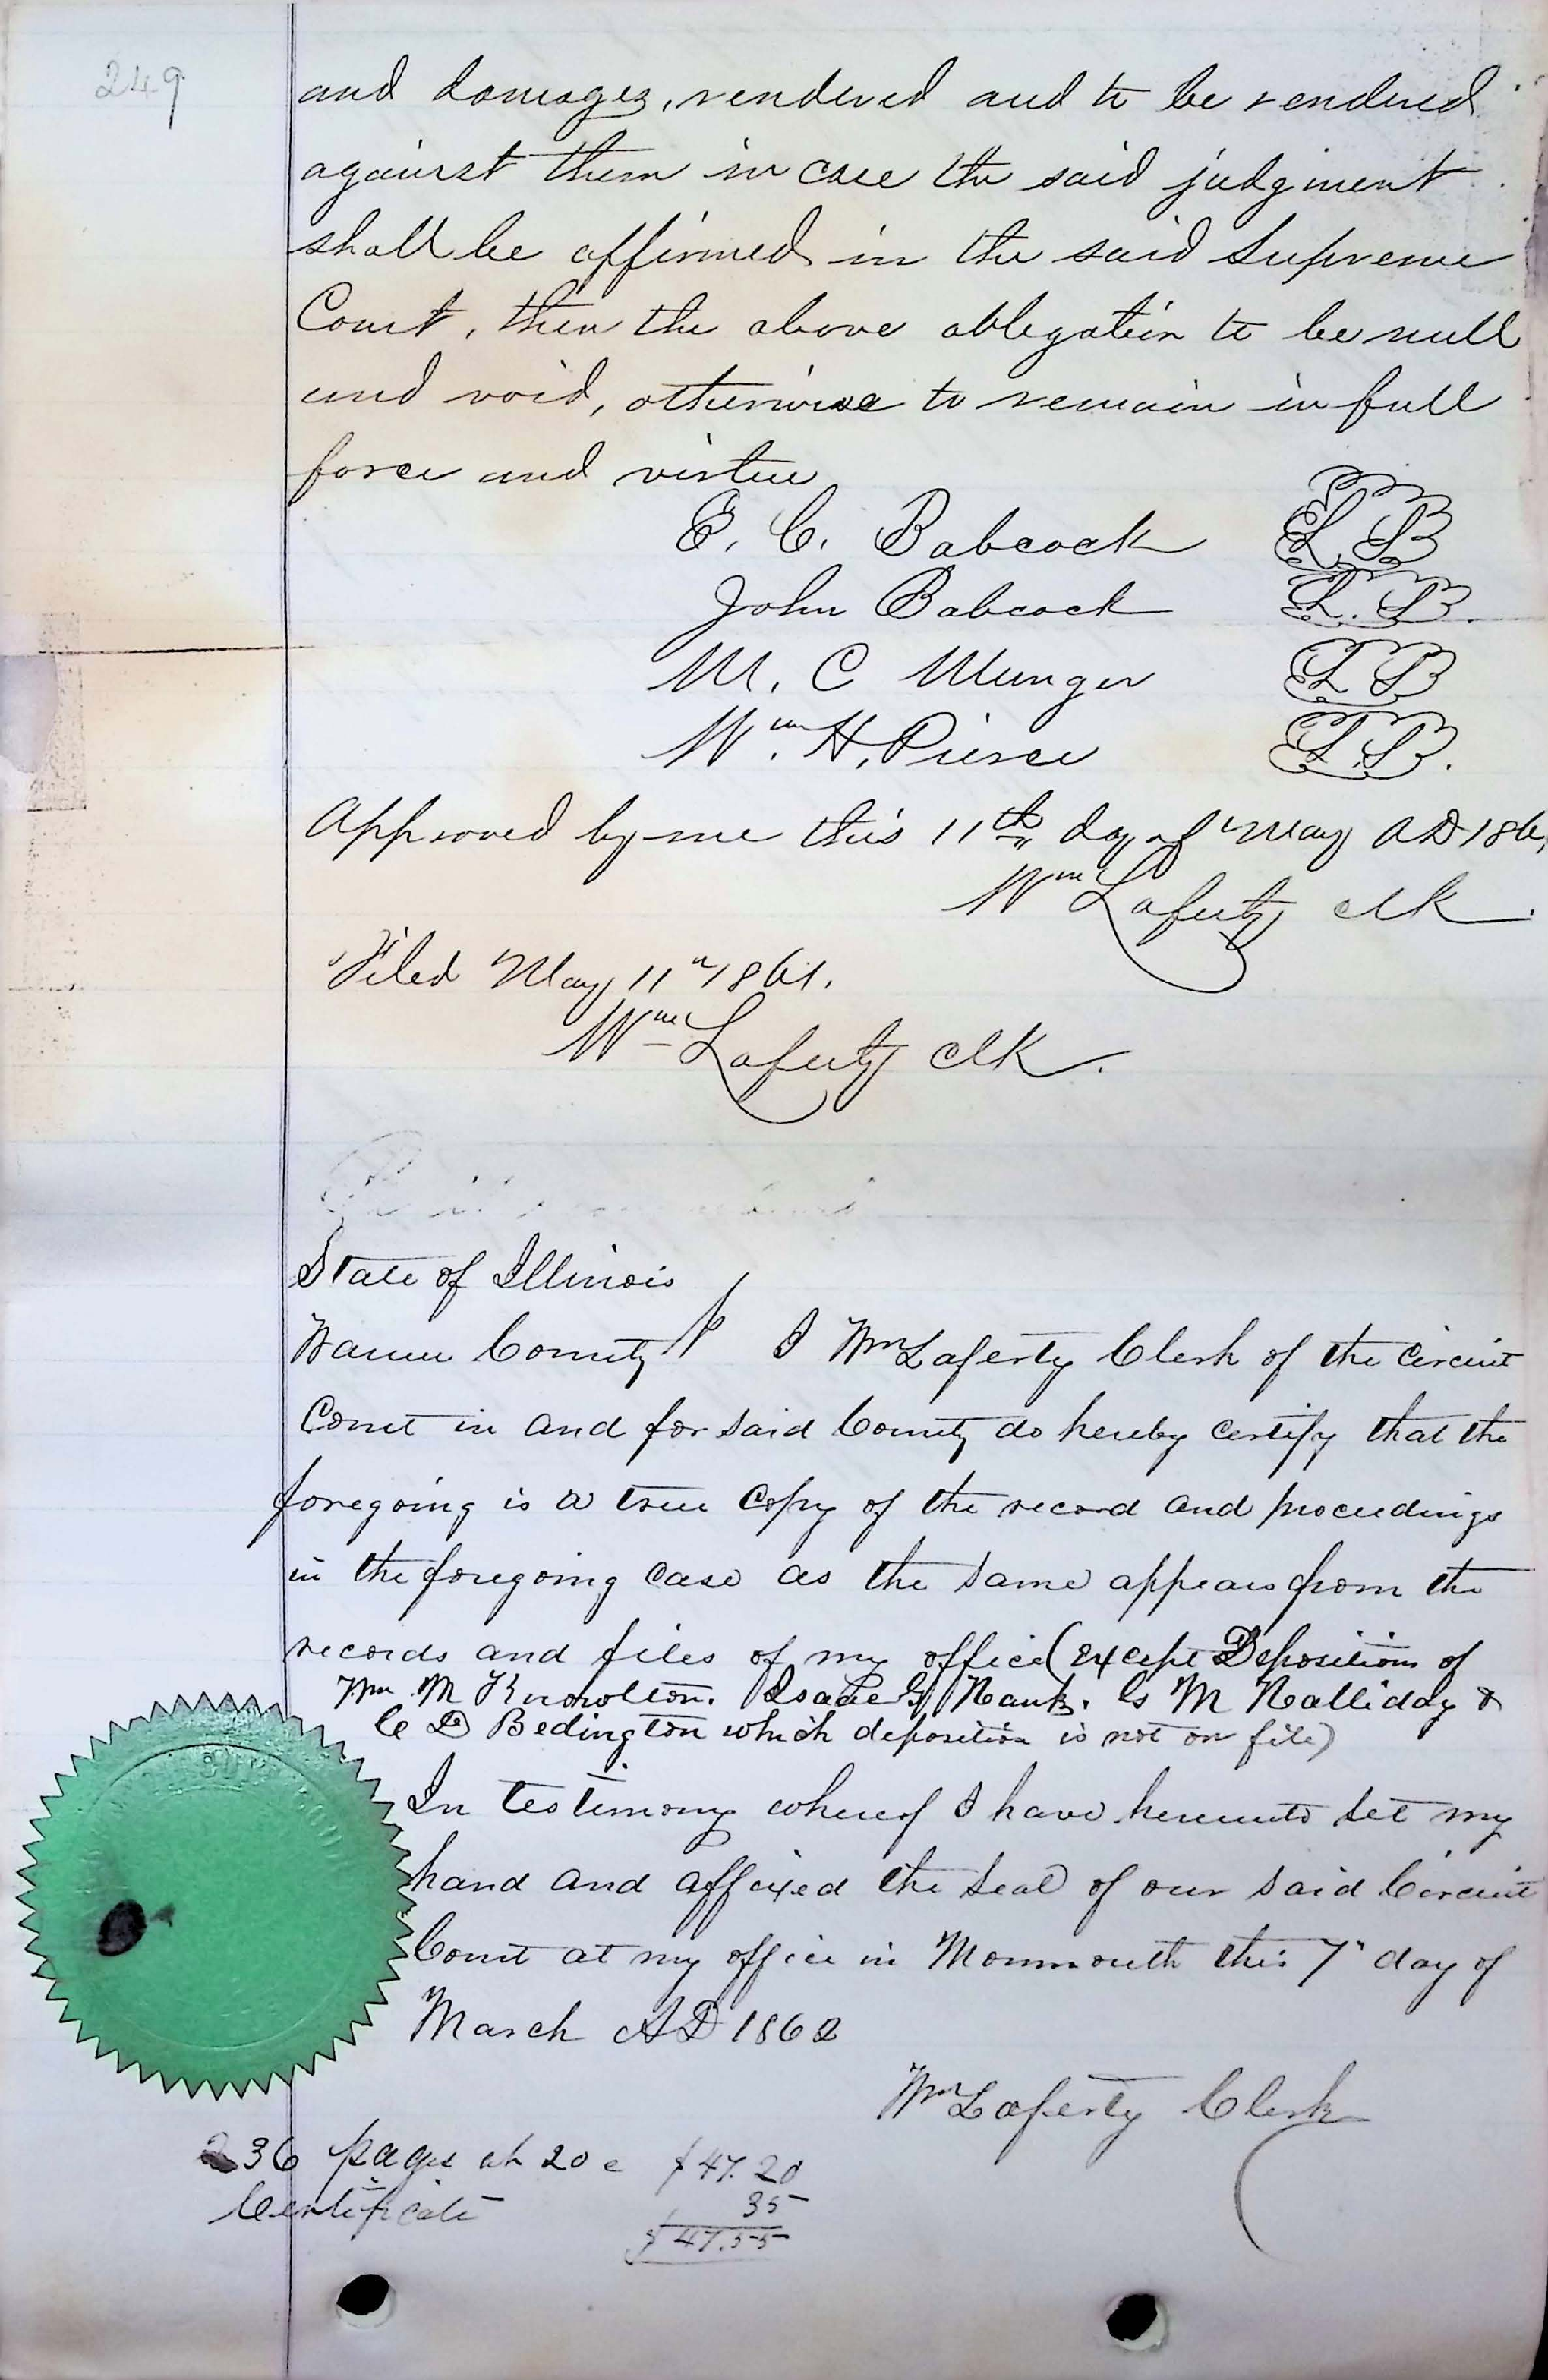 249
and damages, rendered and to be rendered
against them in case the said judgment
shall be affirmed in the said Supreme
Court, then the above obligation to be null
and void, otherwise to remain in full
force and virtue
E. C. Babcock L S
John Babcock L. S.
M. C Munger L S
Wm. H. Pierce L.S.
Approved by me this 11th day of May AD 186
Wm Laferty clk.
Filed May 11" 1861.
Wm Laferty clk.
State of Illinois
Warren County I Wm Laferty Clerk of the Circuit
Court in and for said County do hereby certify that the
foregoing is a true Copy of the record and proceedings
in the foregoing case as the same appears from the
records and files of my office (except Depositions of
Wm M Knowlton. Isaac G. M Halliday &
C D Bedington which deposition is not on file)
In testimony whereof I have hereunto set my
hand and affixed the seal of our said Circuit
Court at my office in Monmouth this 7" day of
March AD 1862
Wm Laferty Clerk
236 pages at 20 c $47.20
Certificate 35
$47.55